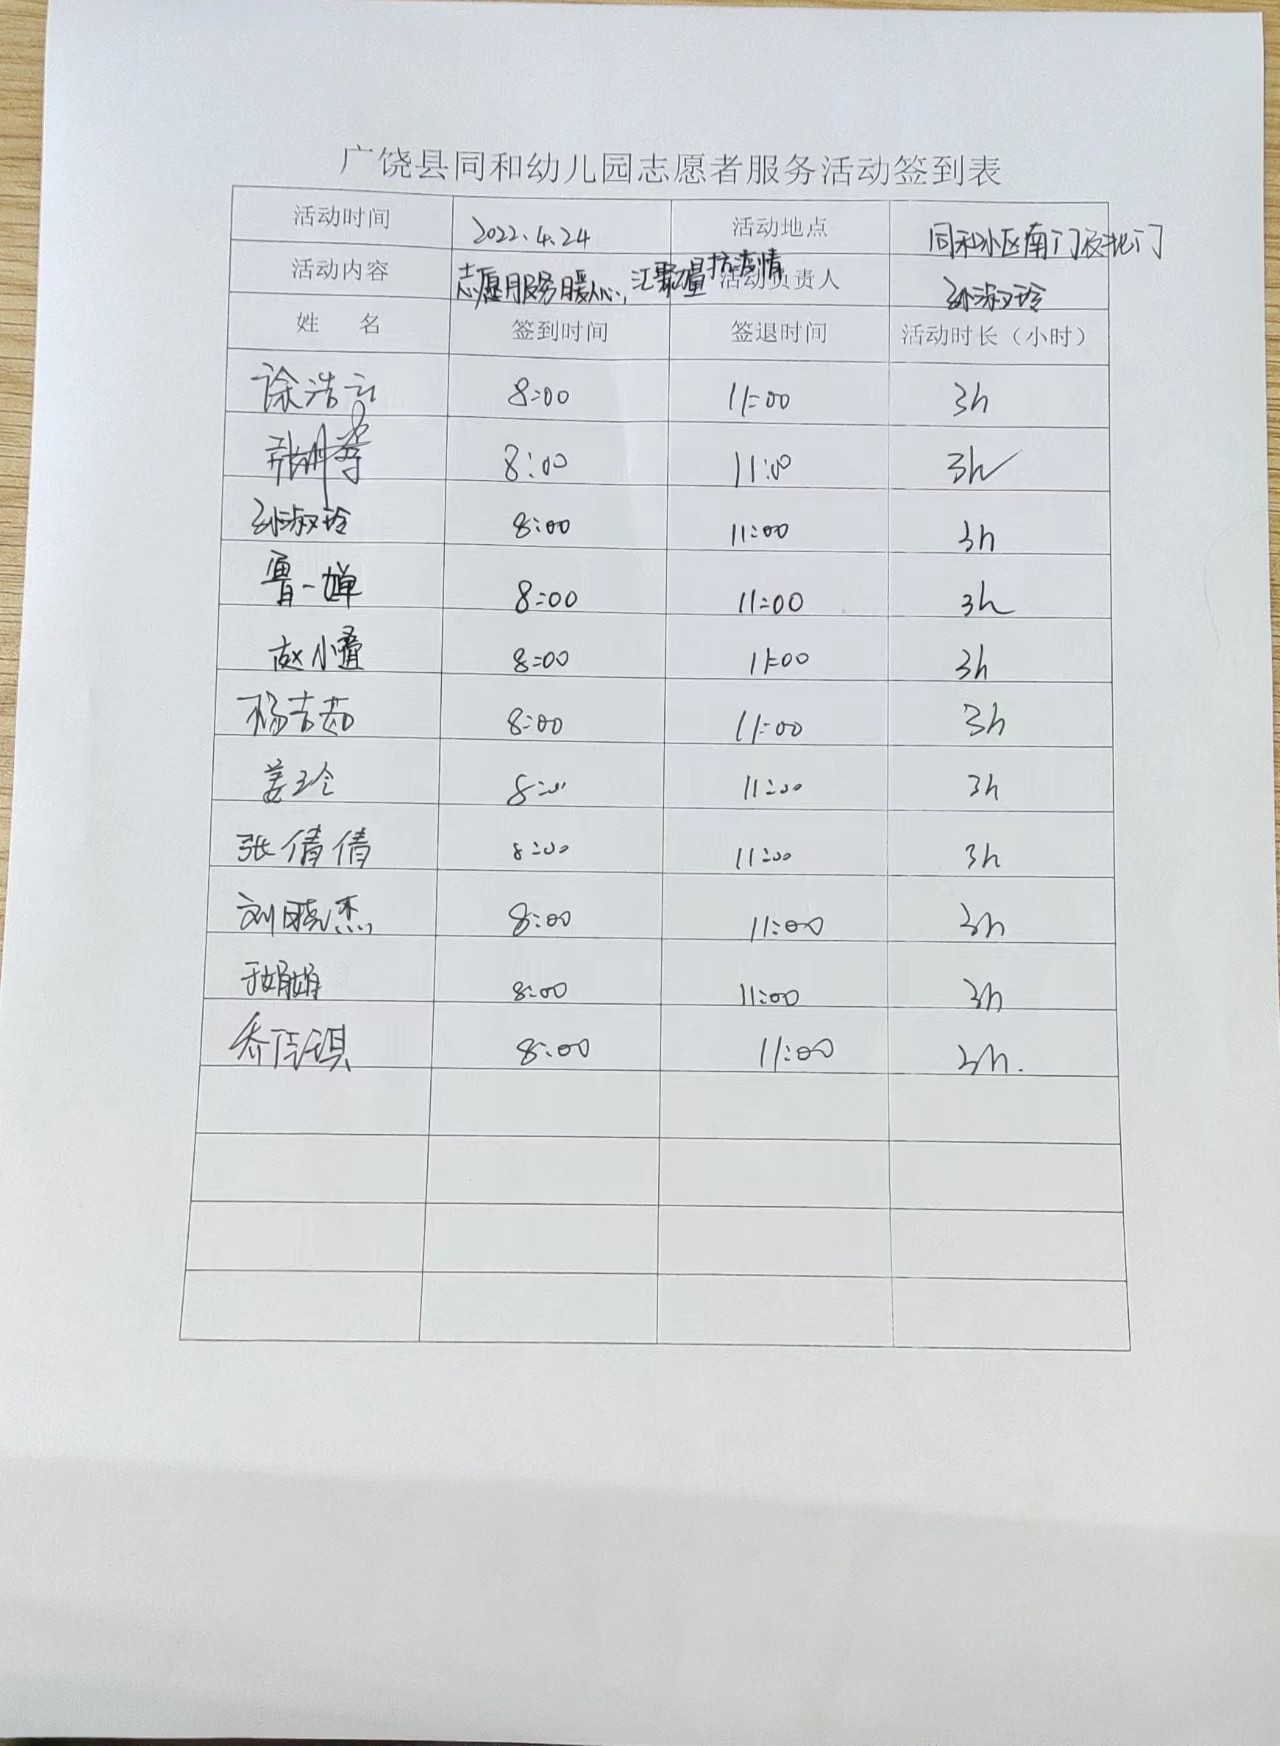 广饶县同和幼儿园志愿者服务活动签到表
活动时间 2022.4.24 活动地点 同和小区南门及北门
活动内容 志愿服务暖人心,汇聚力量抗疫情 活动负责人 孙淑玲
姓 名 签到时间 签退时间 活动时长（小时）
徐浩云 8:00 11:00 3h
8:00 11:00 3h
孙淑玲 8:00 11:00 3h
曹一婵 8:00 11:00 3h
赵小叠 8:00 11:00 3h
杨吉茹 8:00 11:00 3h
姜玲 8:00 11:00 3h
张倩倩 8:00 11:00 3h
刘晓杰 8:00 11:00 3h
于娟娟 8:00 11:00 3h
乔佳琪 8:00 11:00 3h.